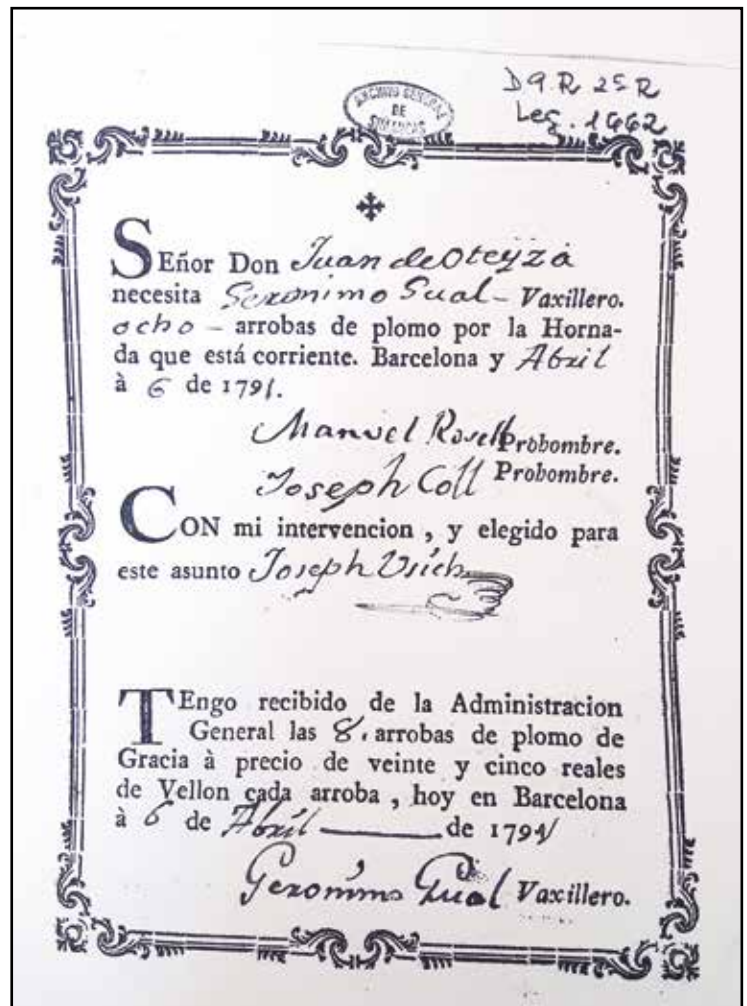 D G R 2ª R
Leg. 1662
ARCHIVO GENERAL
DE
SIMANCAS
SEñor Don Juan de Oteyza
necesita Geronimo Gual - Vaxillero.
ocho - arrobas de plomo por la Horna-
da que está corriente. Barcelona y Abril
à 6 de 1791.
Manuel Rosell Probombre.
Joseph Coll Probombre.
CON mi intervencion , y elegido para
este asunto Joseph
TEngo recibido de la Administracion
General las 8. arrobas de plomo de
Gracia à precio de veinte y cinco reales
de Vellon cada arroba , hoy en Barcelona
à 6 de Abril de 1791
Geronimo Gual Vaxillero.